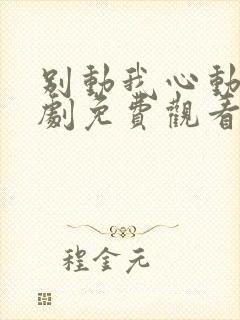 別動我心動
劇免費觀看
程金元